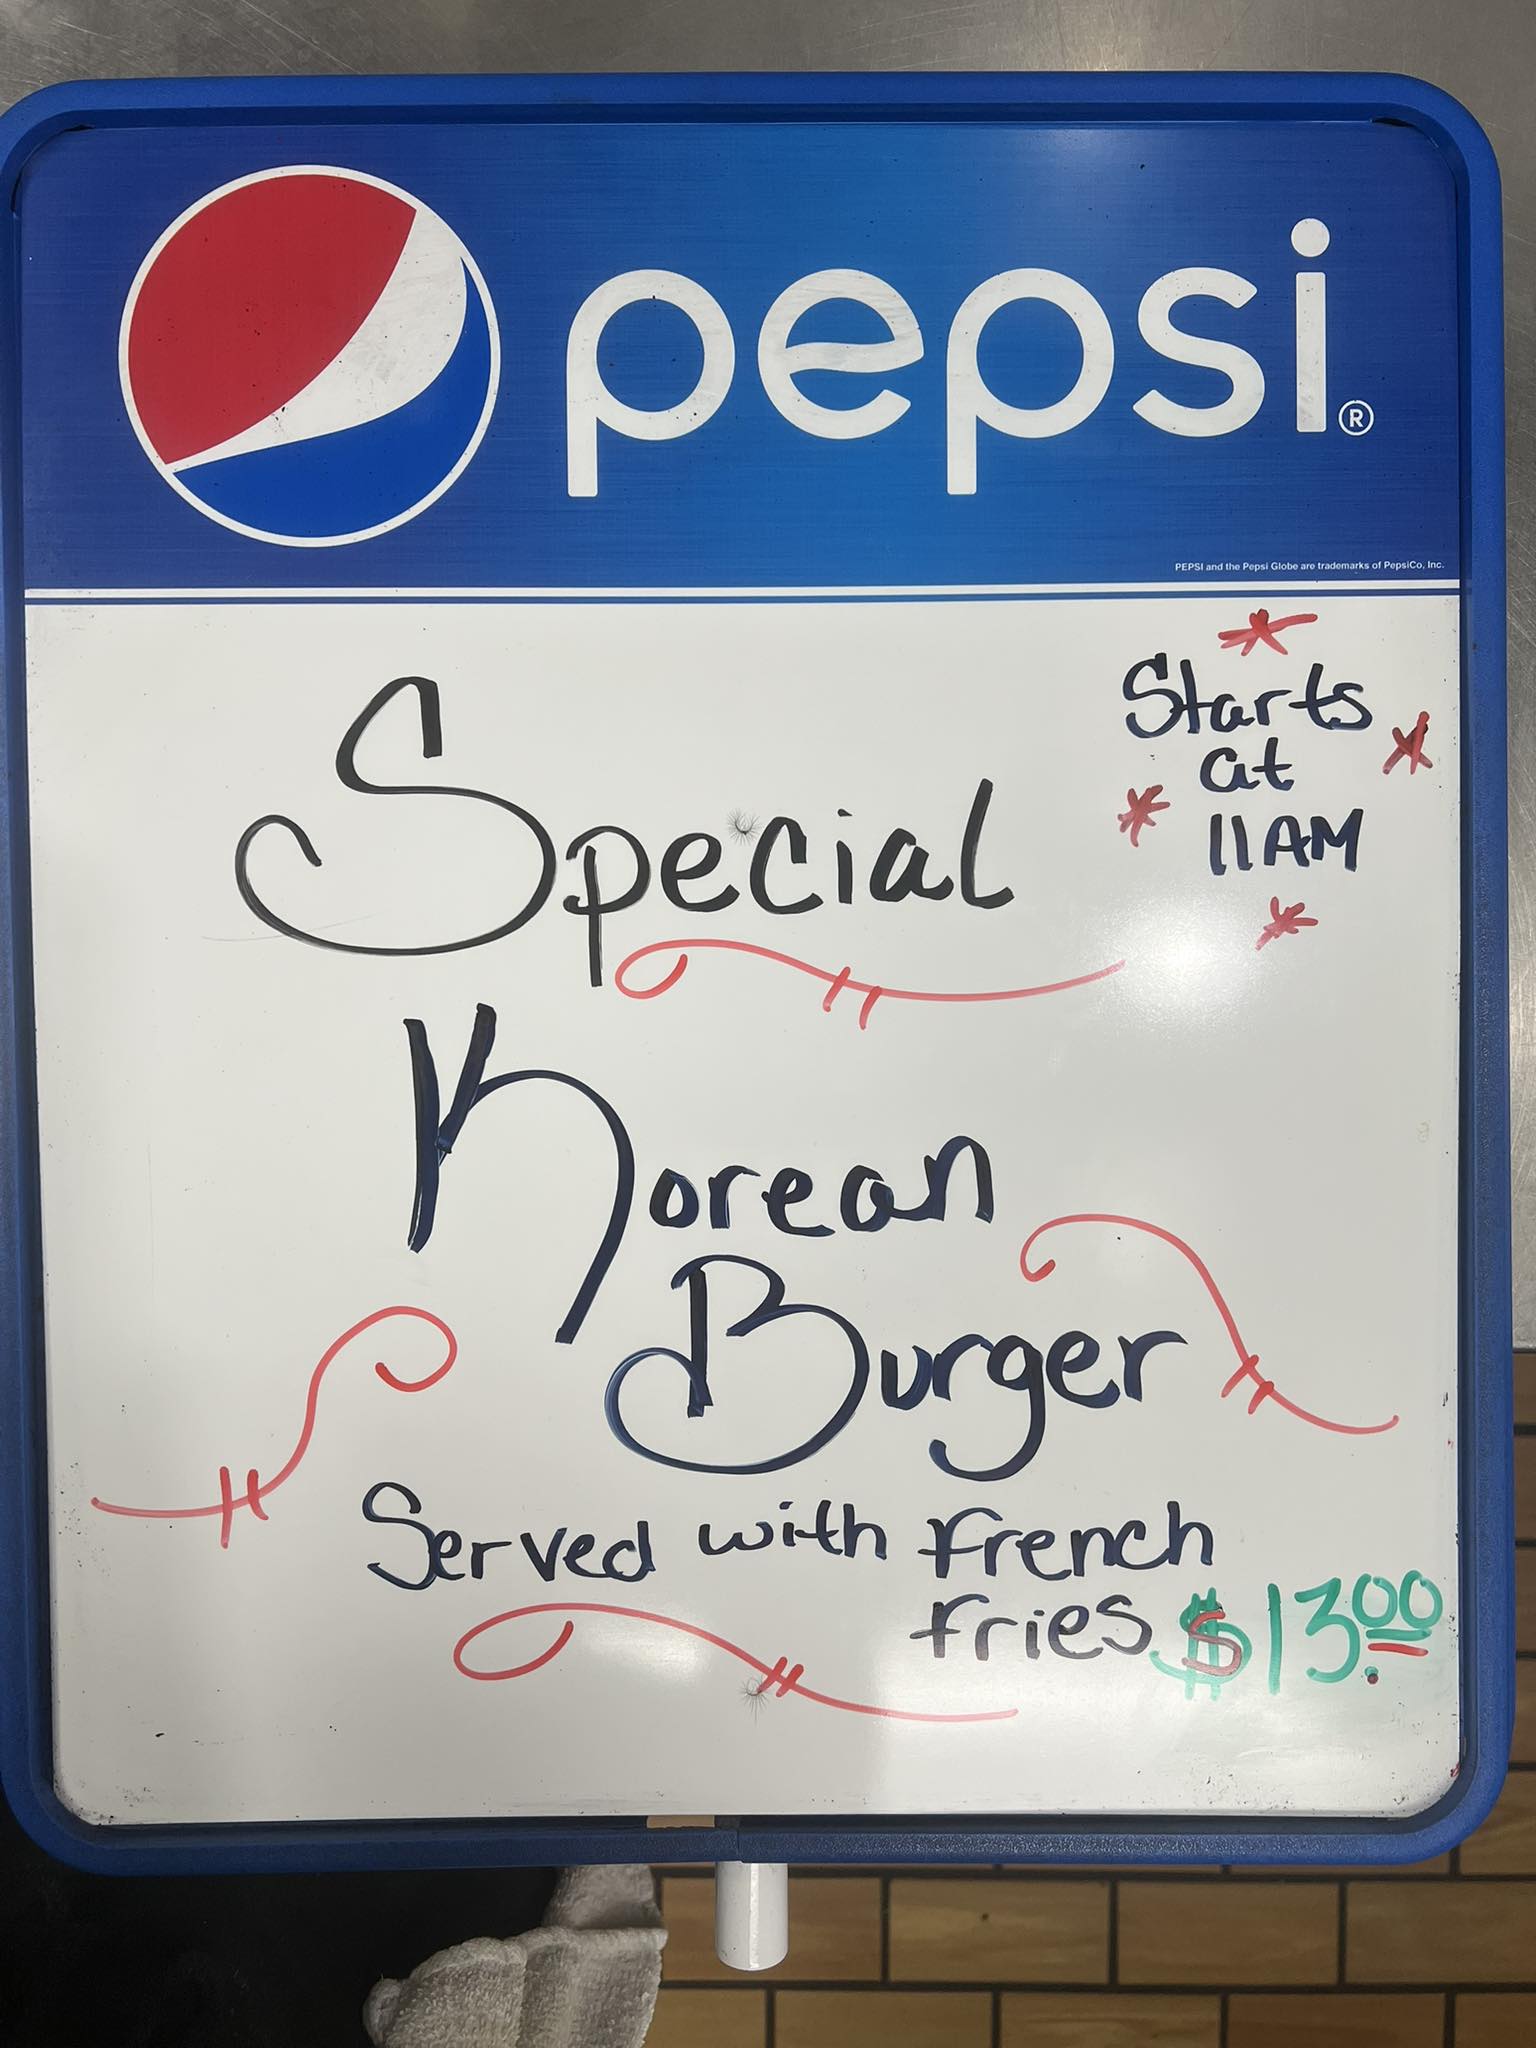 pepsi®
PEPSI and the Pepsi Globe are trademarks of PepsiCo, Inc.
Starts
at
11AM
Special
Korean
Burger
Served with French
Fries $13.00